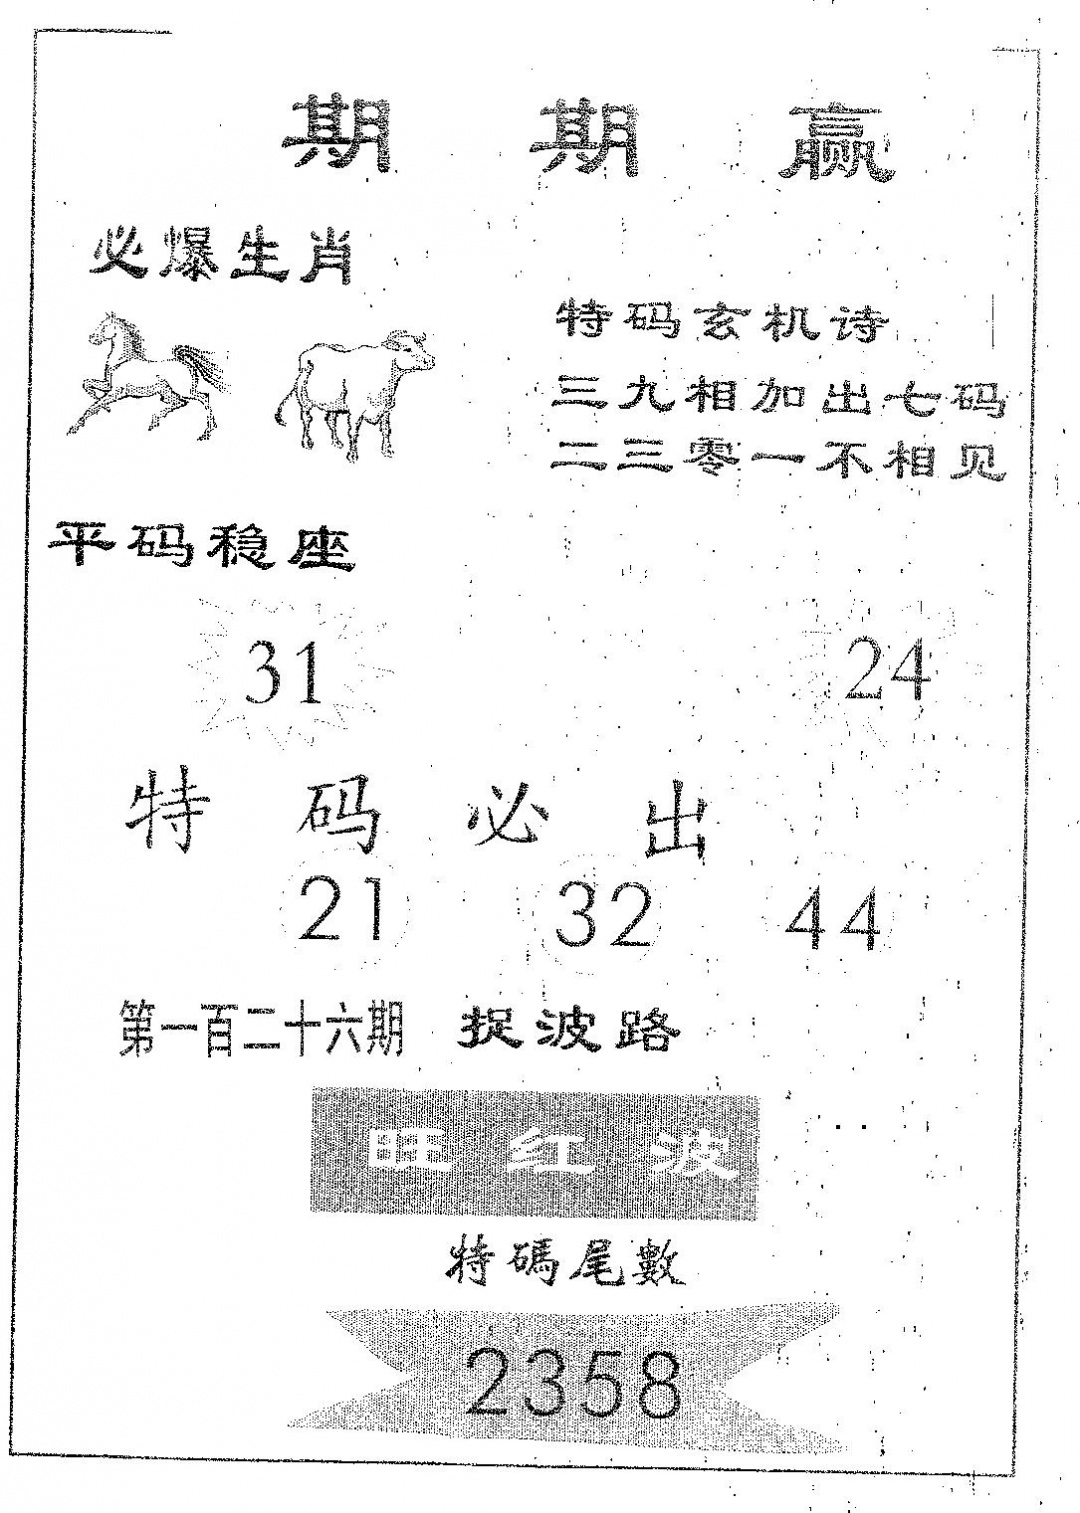 期期赢
必爆生肖
特码玄机诗
三九相加出七码
二三零一不相见
平码稳座
31
24
特码必出
21 32 44
第一百二十六期 捉波路
旺红波
特碼尾數
2358